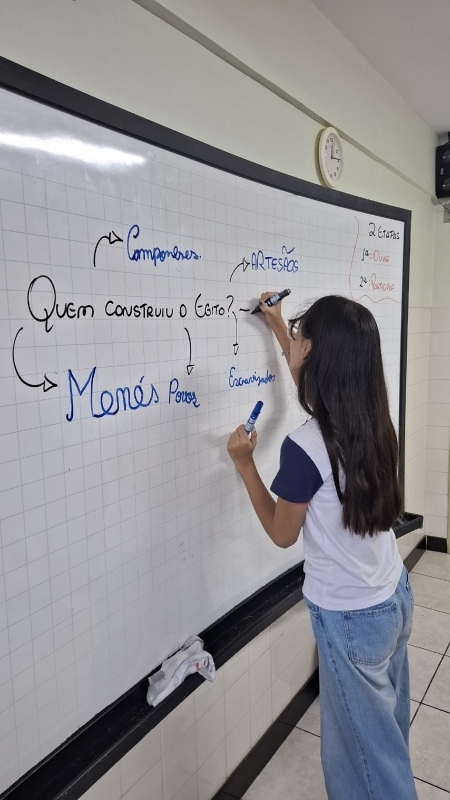 Camponeses.
ARTESÃOS
QUEM CONSTRUIU O EGITO?
Menés
Povos
Escravizados
2 ETAPAS
1ª: Ouvir
2ª: